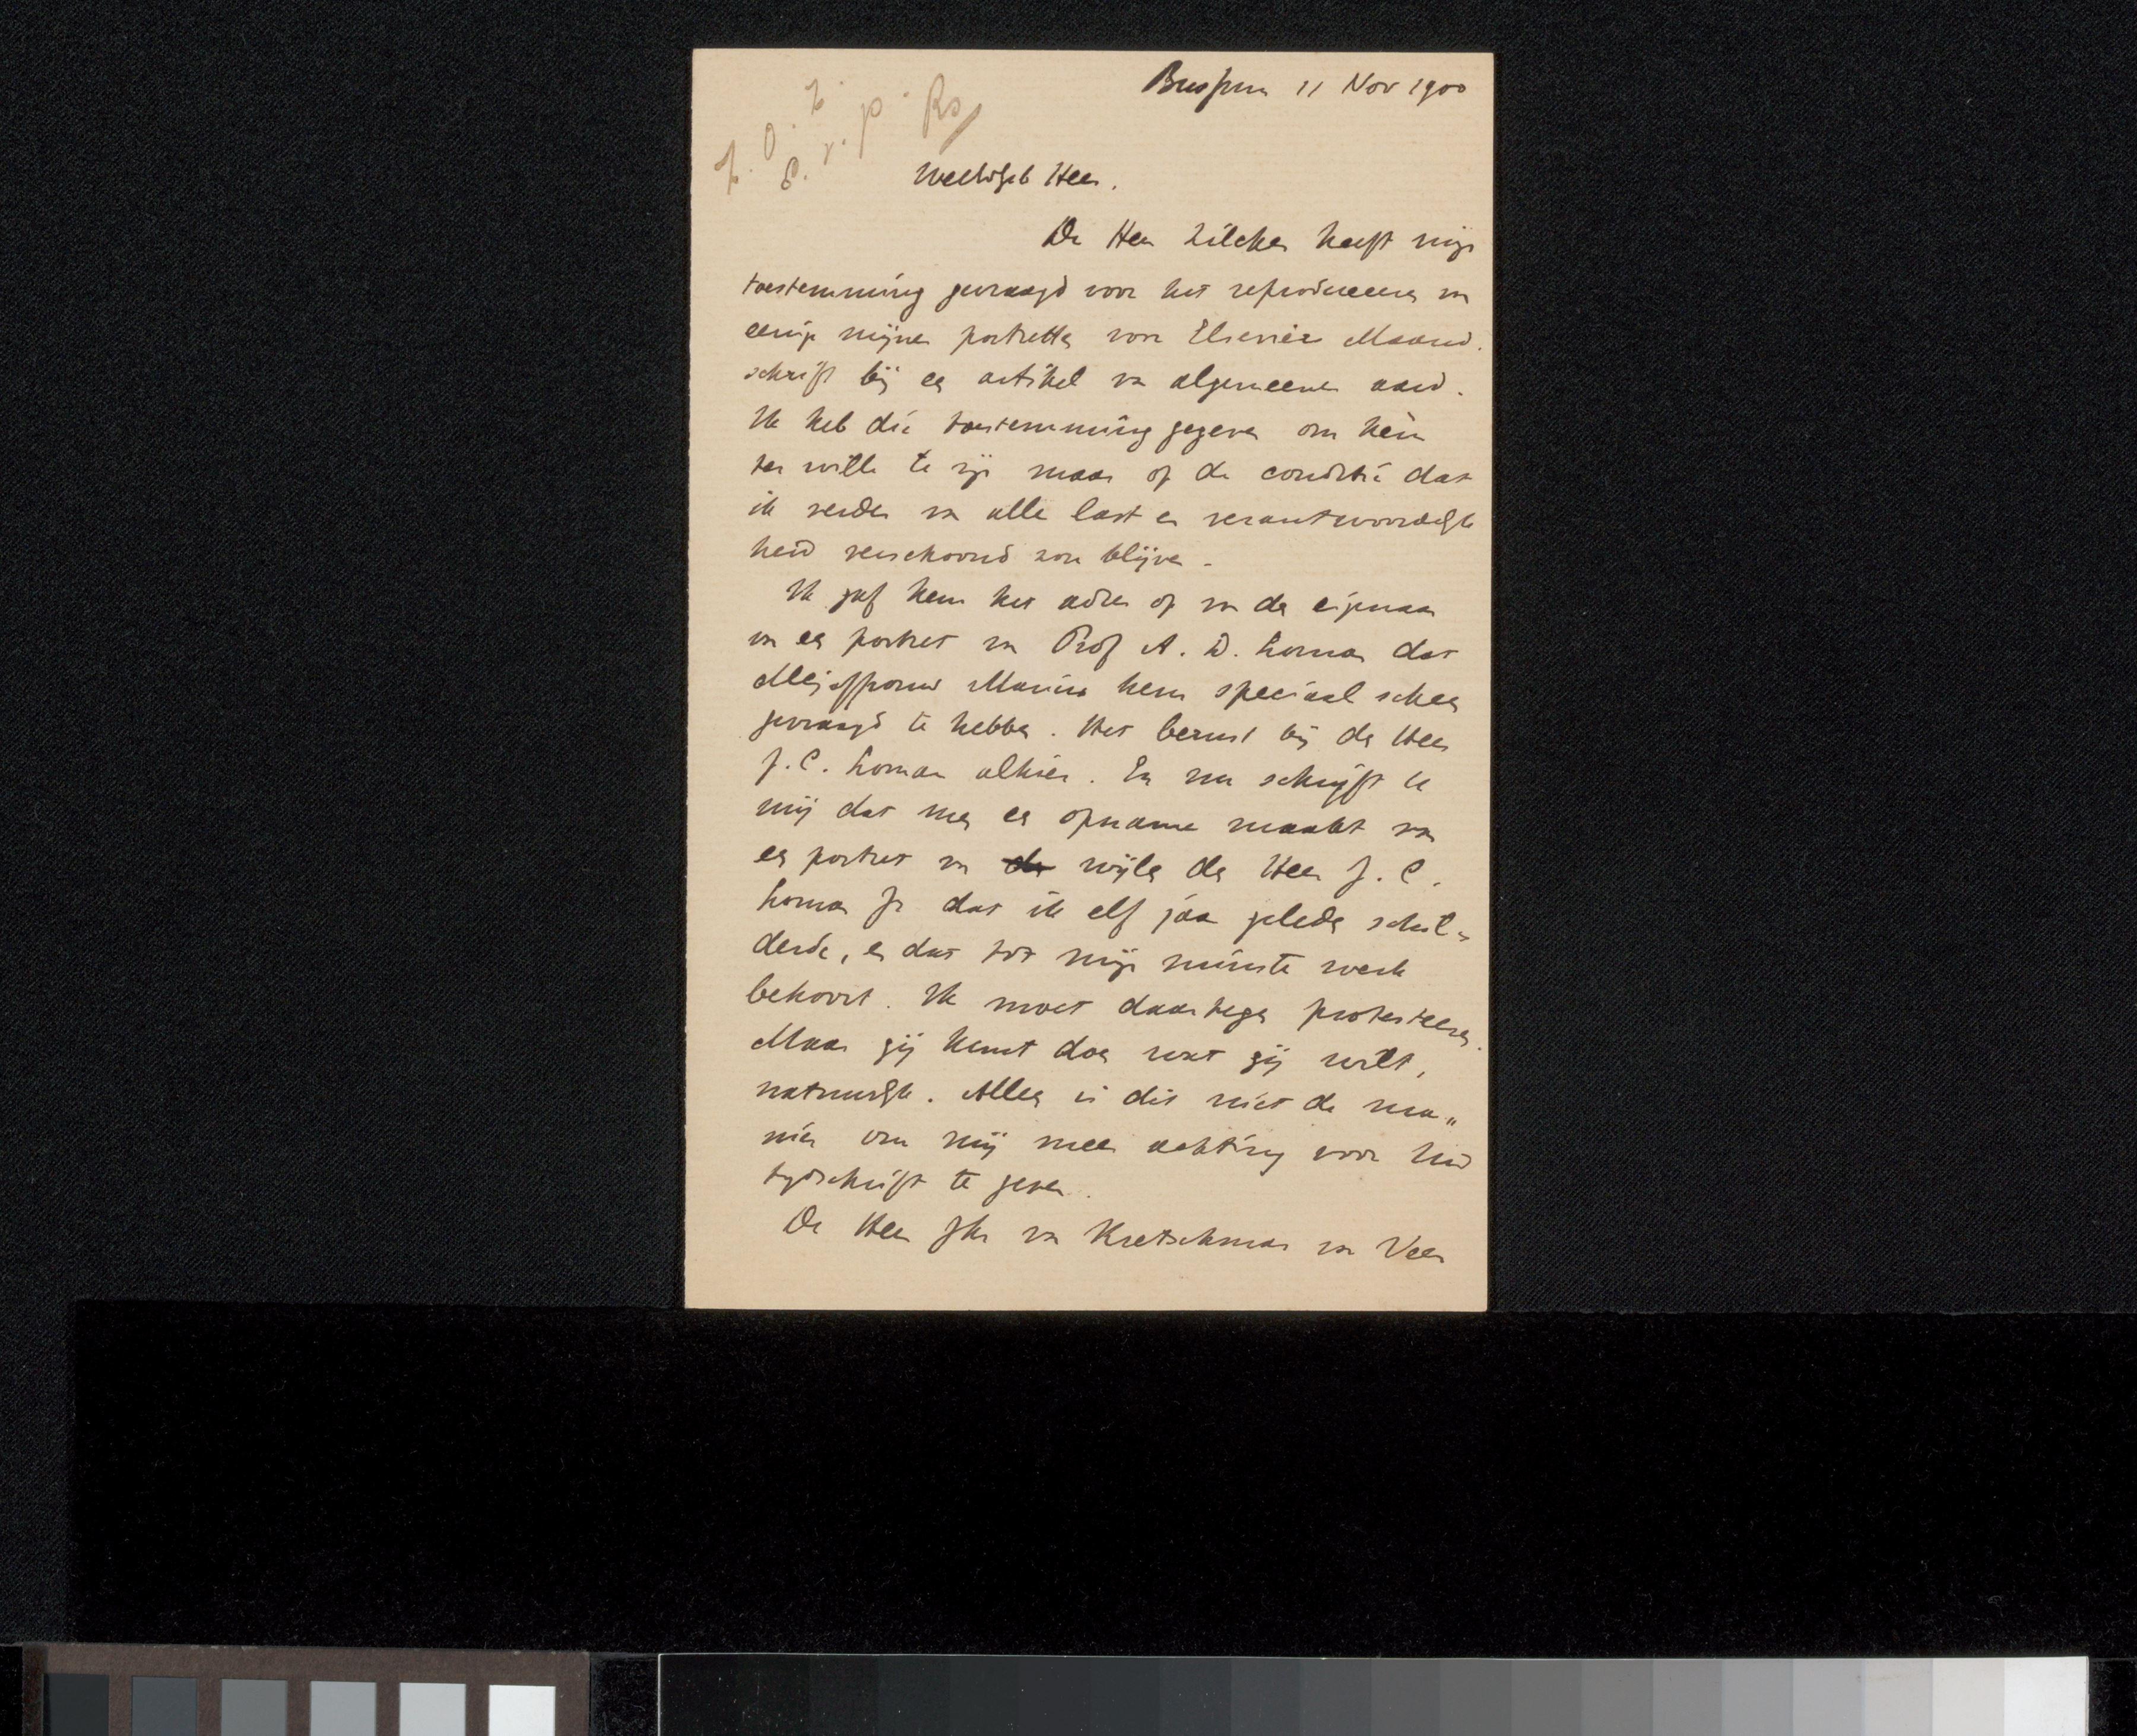 Bussum 11 Nov 1900
WelEdGeb Heer.
De Heer Zilcken heeft mijn
toestemming gevraagd voor het reproduceeren van
eenige mijner portretten voor Elsevier Maand-
schrift bij een artikel van algemeenen aard.
Ik heb die toestemming gegeven om hem
ter wille te zijn maar op de conditie dat
ik verder van alle last en verantwoordelijk
heid verschoond zou blijven.
Ik gaf hem het adres op van den eigenaar
van een portret van Prof A. D. Loman dat
Mejuffrouw Marius hem speciaal scheen
gevraagd te hebben. Het berust bij den Heer
J. C. Loman alhier. En nu schrijft U
mij dat men een opname maakt van
een portret van den wijlen den Heer J. C.
Loman Jr dat ik elf jaar geleden schil-
derde, en dat tot mijn minste werk
behoort. Ik moet daartegen protesteeren.
Maar gij kunt doen wat gij wilt,
natuurlijk. Alleen is dit niet de ma-
nier om mij meer achting voor Uw
tydschrift te geven.
De Heer Jhr van Kretschmar van Veen